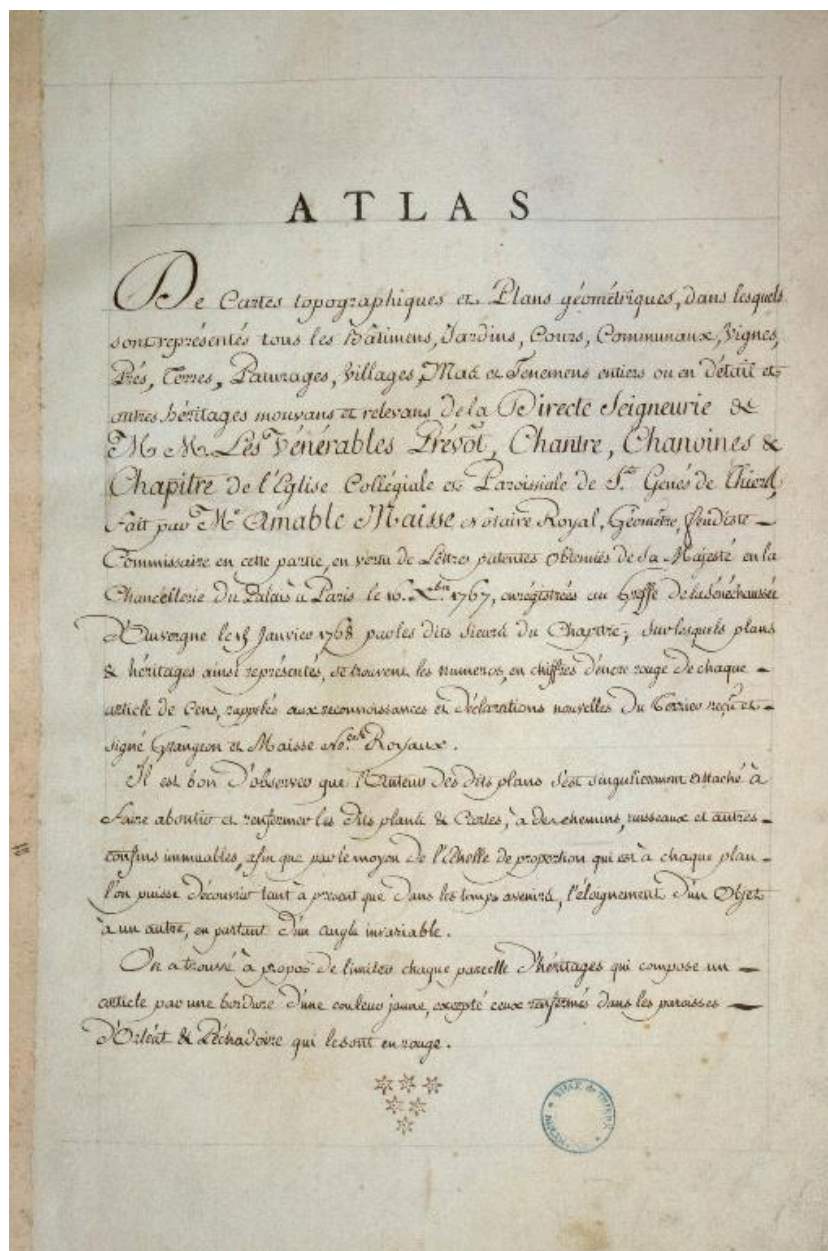 ATLAS
De Cartes topographiques et Plans géométriques, dans lesquels
sont représentés tous les Bâtimens, Jardins, Cours, Communaux, Vignes,
Prés, Terres, Paturages, Villages, Mas et Tenemens entiers ou en Détail et
autres héritages mouvans et relevans de la Directe Seigneurie de
M. M. Les Vénérables Prévôt, Chantre, Chanoines &
Chapitre de l'Eglise Collégiale et Paroissiale de St. Genés de Thiers,
Fait par Me. Amable Maisse Notaire Royal, Géometre, feudiste
Commissaire en cette partie, en vertu de Lettres patentes obtenües de Sa Majesté en la
Chancellerie du Palais à Paris le 16. Xbre. 1767, enrégistrées au Greffe de la Sénéchaussée
D'Auvergne le Janvier 1768 par les dits Sieurs du Chapitre; sur lesquels plans
& héritages ainsi représentés, se trouvent les numeros, en chiffres d'encre rouge de chaque
article de Cens, rappelés aux reconnoissances et Déclarations nouvelles du Terrier reçu et
signé Grangeon et Maisse Royaux.
Il est bon D'observer que l'Auteur des dits plans s'est singulierement attaché à
faire aboutir et renfermer les dits plans & Cartes, à des chemins, ruisseaux et autres
confins immuables, afin que par le moyen de l'Echelle de proportion qui est à chaque plan
l'on puisse Découvrir tant à present que dans les temps avenirs, l'éloignement d'un Objet
à un autre, en partant d'un angle invariable.
On a trouvé à propos de limiter chaque parcelle D'héritages qui compose un
article par une bordure d'une couleur jaune, excepté ceux renfermés dans les paroisses
D'Orléat & Péchadoire qui le sont en rouge.
VILLE de THIERS